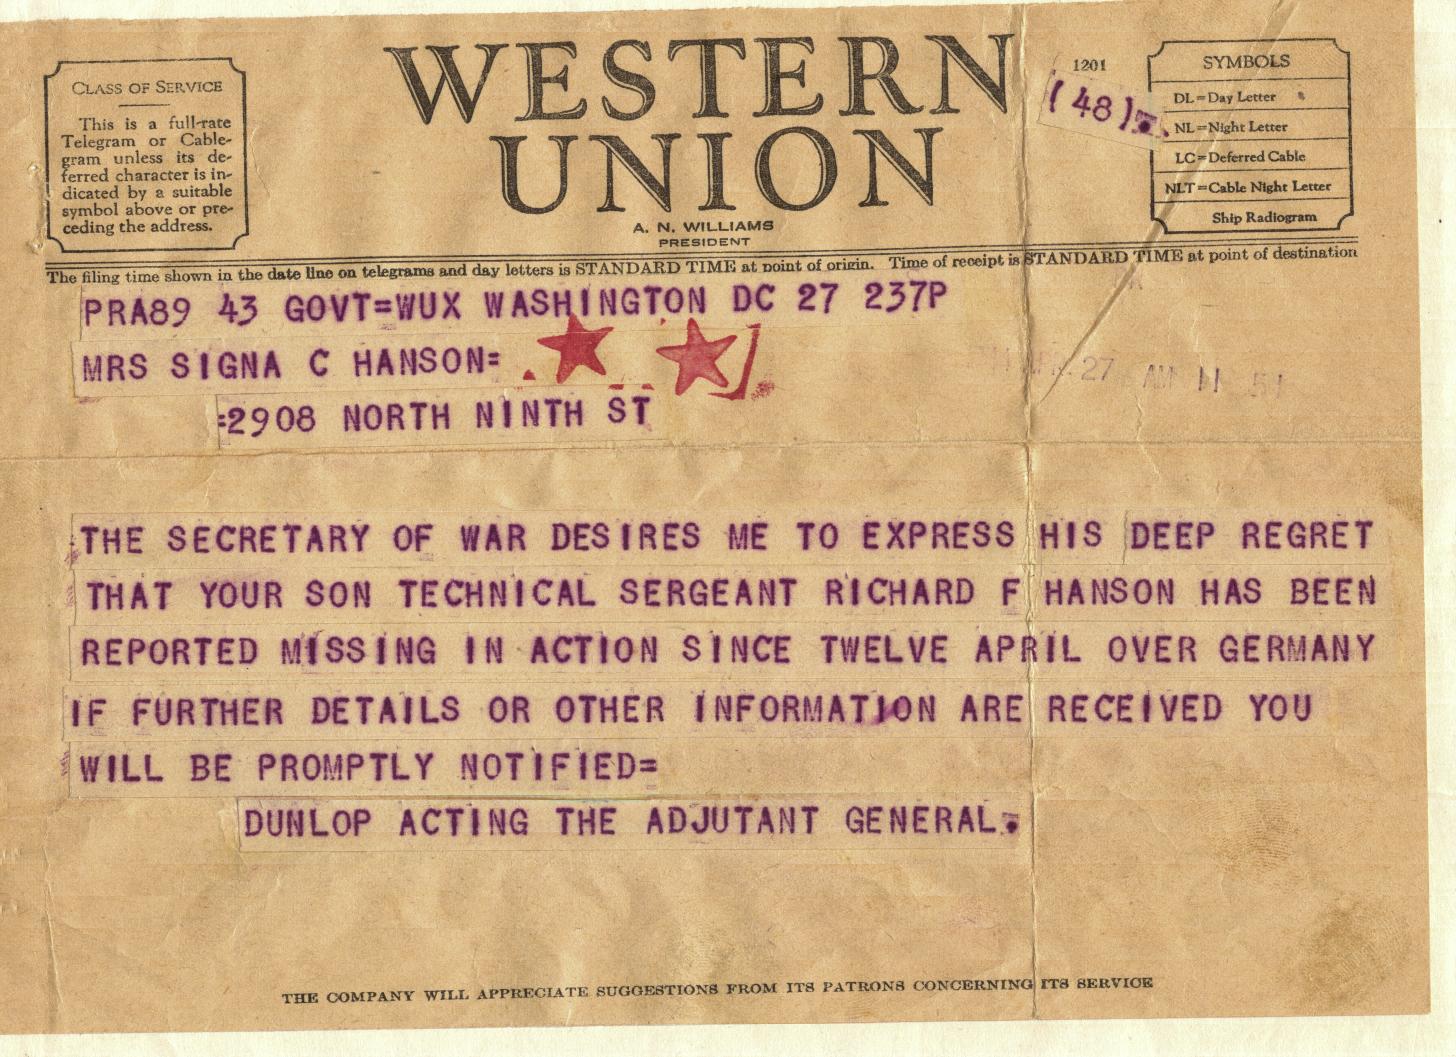 WESTERN
UNION
1201
(48)
A. N. WILLIAMS
PRESIDENT
CLASS OF SERVICE
This is a full-rate
Telegram or Cable-
gram unless its de-
ferred character is in-
dicated by a suitable
symbol above or pre-
ceding the address.
SYMBOLS
DL=Day Letter
NL=Night Letter
LC=Deferred Cable
NLT=Cable Night Letter
Ship Radiogram
The filing time shown in the date line on telegrams and day letters is STANDARD TIME at point of origin. Time of receipt is STANDARD TIME at point of destination
PRA89 43 GOVT=WUX WASHINGTON DC 27 237P
MRS SIGNA C HANSON=
27 AM 11 51
=2908 NORTH NINTH ST
THE SECRETARY OF WAR DESIRES ME TO EXPRESS HIS DEEP REGRET
THAT YOUR SON TECHNICAL SERGEANT RICHARD F HANSON HAS BEEN
REPORTED MISSING IN ACTION SINCE TWELVE APRIL OVER GERMANY
IF FURTHER DETAILS OR OTHER INFORMATION ARE RECEIVED YOU
WILL BE PROMPTLY NOTIFIED=
DUNLOP ACTING THE ADJUTANT GENERAL.
THE COMPANY WILL APPRECIATE SUGGESTIONS FROM ITS PATRONS CONCERNING ITS SERVICE